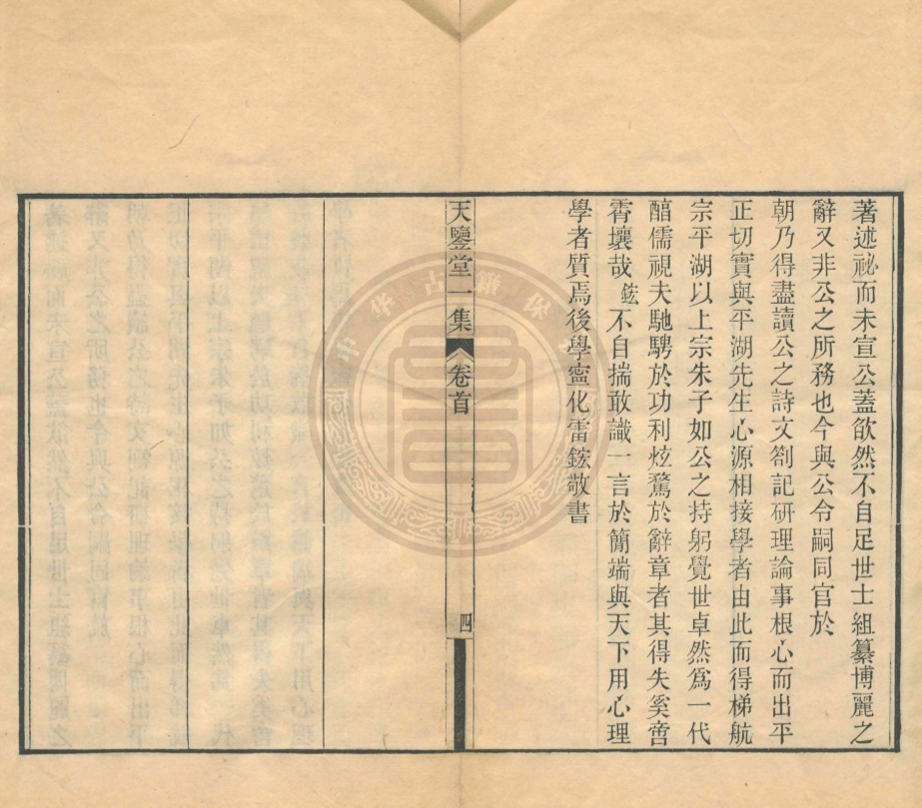 著述祕而未宣公蓋欿然不自足世士組纂博麗之
辭又非公之所務也今與公令嗣同官於
朝乃得盡讀公之詩文劄記研理論事根心而出平
正切實與平湖先生心源相接學者由此而得梯航
宗平湖以上宗朱子如公之持躬覺世卓然爲一代
醕儒視夫馳騁於功利炫鶩於辭章者其得失奚啻
霄壤哉鋐不自揣敢識一言於簡端與天下用心理
學者質焉後學寧化雷鋐敬書
天鑒堂一集 卷首 四
中华古籍保